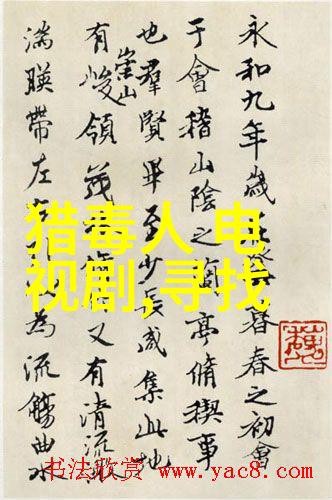 永和九年歲暮春之初會
于會稽山陰之蘭亭脩稧事
也羣賢畢至少長咸集此地
有崇山峻領茂又有清流激
湍暎帶左為流觴曲水
猎毒人 电
视剧,寻找
书法欣赏 www.yac8.com